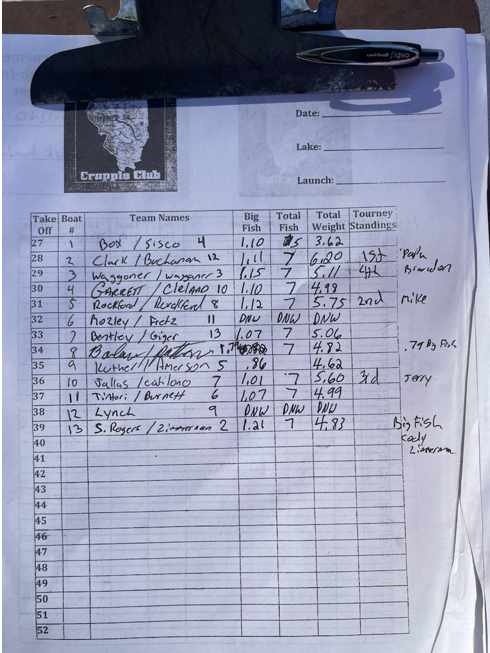 uni-ball SIGNO
Crappie Club
Date:
Lake:
Launch:
Take Off Boat # Team Names Big Fish Total Fish Total Weight Tourney Standings
27 1 Box / Sisco 4 1.10 5 3.62
28 2 Clark / Buchanan 12 1.11 7 6.20 1st Papa
29 3 Waggoner / Waggoner 3 1.15 7 5.11 4th Brandon
30 4 GARRETT / CLELAND 10 1.10 7 4.98
31 5 Rockford / Rockford 8 1.12 7 5.75 2nd Mike
32 6 Mozley / 11 DNW DNW DNW
33 7 Bentley / Giger 13 1.07 7 5.06
34 8 7 4.82 .79 Big Fish
35 9 Luther / Amerson 5 .86 4.62
36 10 Jallas / Catilano 7 1.01 7 5.60 3rd Jerry
37 11 Tintori / Burnett 6 1.07 7 4.99
38 12 Lynch 9 DNW DNW DNW
39 13 S. Rogers / Zimmerman 2 1.21 7 4.83 Big Fish
40 Cody
41 Zimmerman
42
43
44
45
46
47
48
49
50
51
52